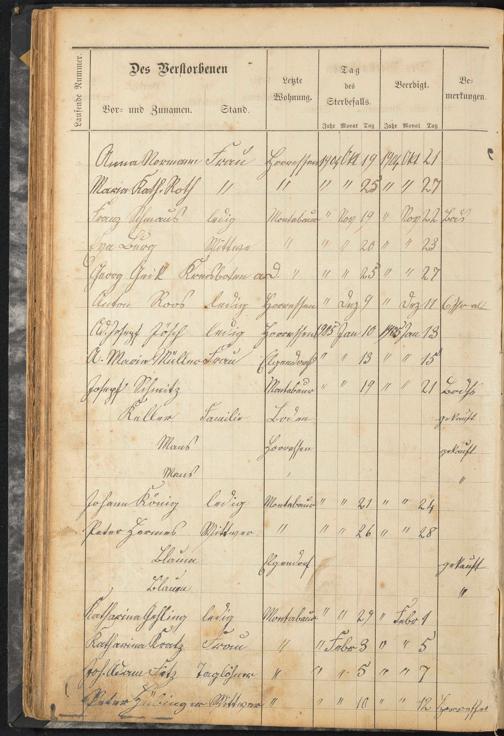 Laufende Nummer.
Des Verstorbenen
Vor- und Zunamen. Stand.
Letzte Wohnung.
Tag des Sterbefalls.
Jahr Monat Tag
Beerdigt.
Jahr Monat Tag
Bemerkungen.
Anna Normann Frau Horressen 1904 Okt 19 1904 Okt 21
Maria Kath. Roth " " " " 25 " " 27
Franz ledig Montabaur " Nov 19 " Nov 22
Eva Wittwe " " " 20 " " 23
Georg " " " 25 " " 27
Anton Roos ledig Horressen " Dez 9 " Dez 11
Ad. Josef ledig Horressen 1905 Jan 10 1905 Jan 13
A. Maria Müller Frau Elgendorf " " 13 " " 15
Josef Schmitz Montabaur " " 19 " " 21
Keller Familie Boden gekauft
Mans Horressen gekauft
Mans " "
Johann König ledig Montabaur " " 21 " " 24
Peter Hermes Wittwer " " " 26 " " 28
Blaum Elgendorf gekauft
Blaum "
Katharina Gehling ledig Montabaur " " 29 " Febr 1
Katharina Kratz Frau " " Febr 3 " " 5
Joh. Adam Taglöhner " " " 5 " " 7
Peter Wittwer " " " 10 " " 12 Horressen